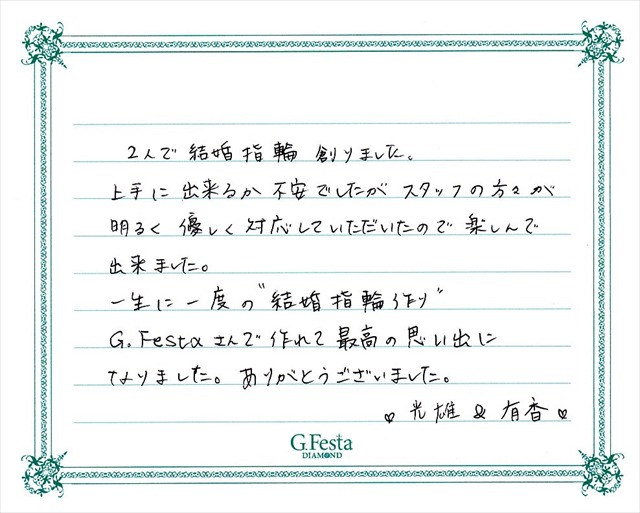 2人で結婚指輪 創りました。
上手に出来るか不安でしたが スタッフの方々が
明るく優しく対応していただいたので楽しんで
出来ました。
一生に一度の"結婚指輪作り"
G.Festaさんで作れて最高の思い出に
なりました。ありがとうございました。
♡光雄&有香♡
G.Festa
DIAMOND